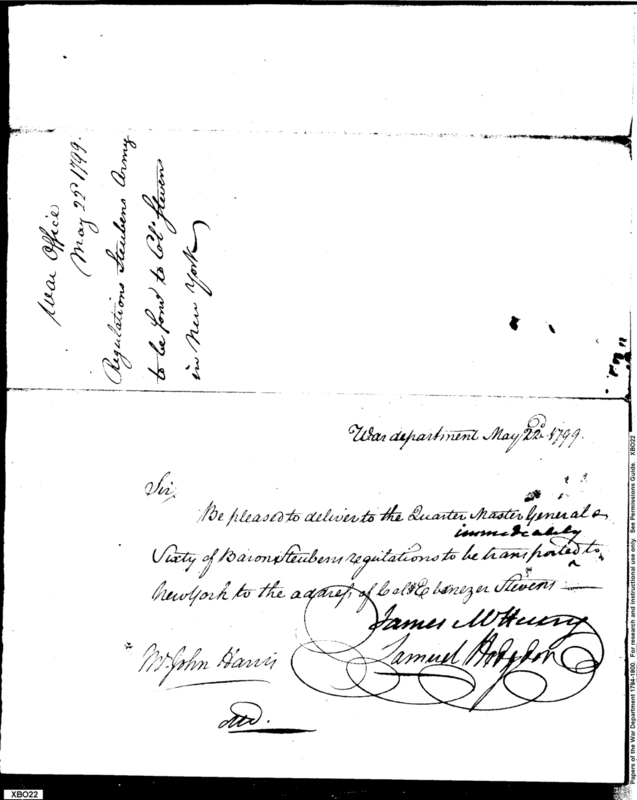 War Office
May 22d 1799.
Regulations Steubens Army
to be forwd to Col. Stevens
in New York
War department May 22d 1799.
Sir,
Be pleased to deliver to the Quarter Master General
immediately
Sixty of Baron Steubens regulations to be transported to
New York to the address of Col Ebenezer Stevens
James McHenry
Samuel Hodgdon
Mr John Harris
Papers of the War Department 1784-1800. For research and instructional use only. See Permissions Guide. XBO22
XBO22